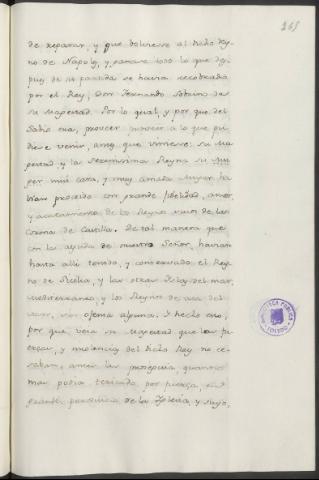 265
de reparar, y que bolviesse al dicho Rey-
no de Napoles, y ganase todo lo que des-
pues de su partida se havia recobrado
por el Rey, Don Fernando sobrino de
su Magestad. Por lo qual, y por que del
Sabio era, proveer a lo que pu-
diese venir, antes que viniese: su Ma-
gestad y la Serenissima Reyna su mu-
ger mui cara, y muy amada muger ha-
bían proveido con grande fidelidad, amor,
y acatamiento de los Reynos suyos de la
Corona de Castilla. De tal manera que
con la ayuda de nuestro Señor, havian
hasta alli tenido, y conservado el Rey-
no de Sicilia, y las otras Islas del mar
mediterraneo, y los Reynos de aca del
mar, sin ofensa alguna. I hecho esto,
por que veia su Magestad que las fu-
erzas, y violencias del dicho Rey no ce-
saban, antes las proseguia, quanto
mas podia teniendo por fuerza, en
grande perjuicio de la Iglesia, y suyo,
BIBLIOTECA PUBLICA
TOLEDO